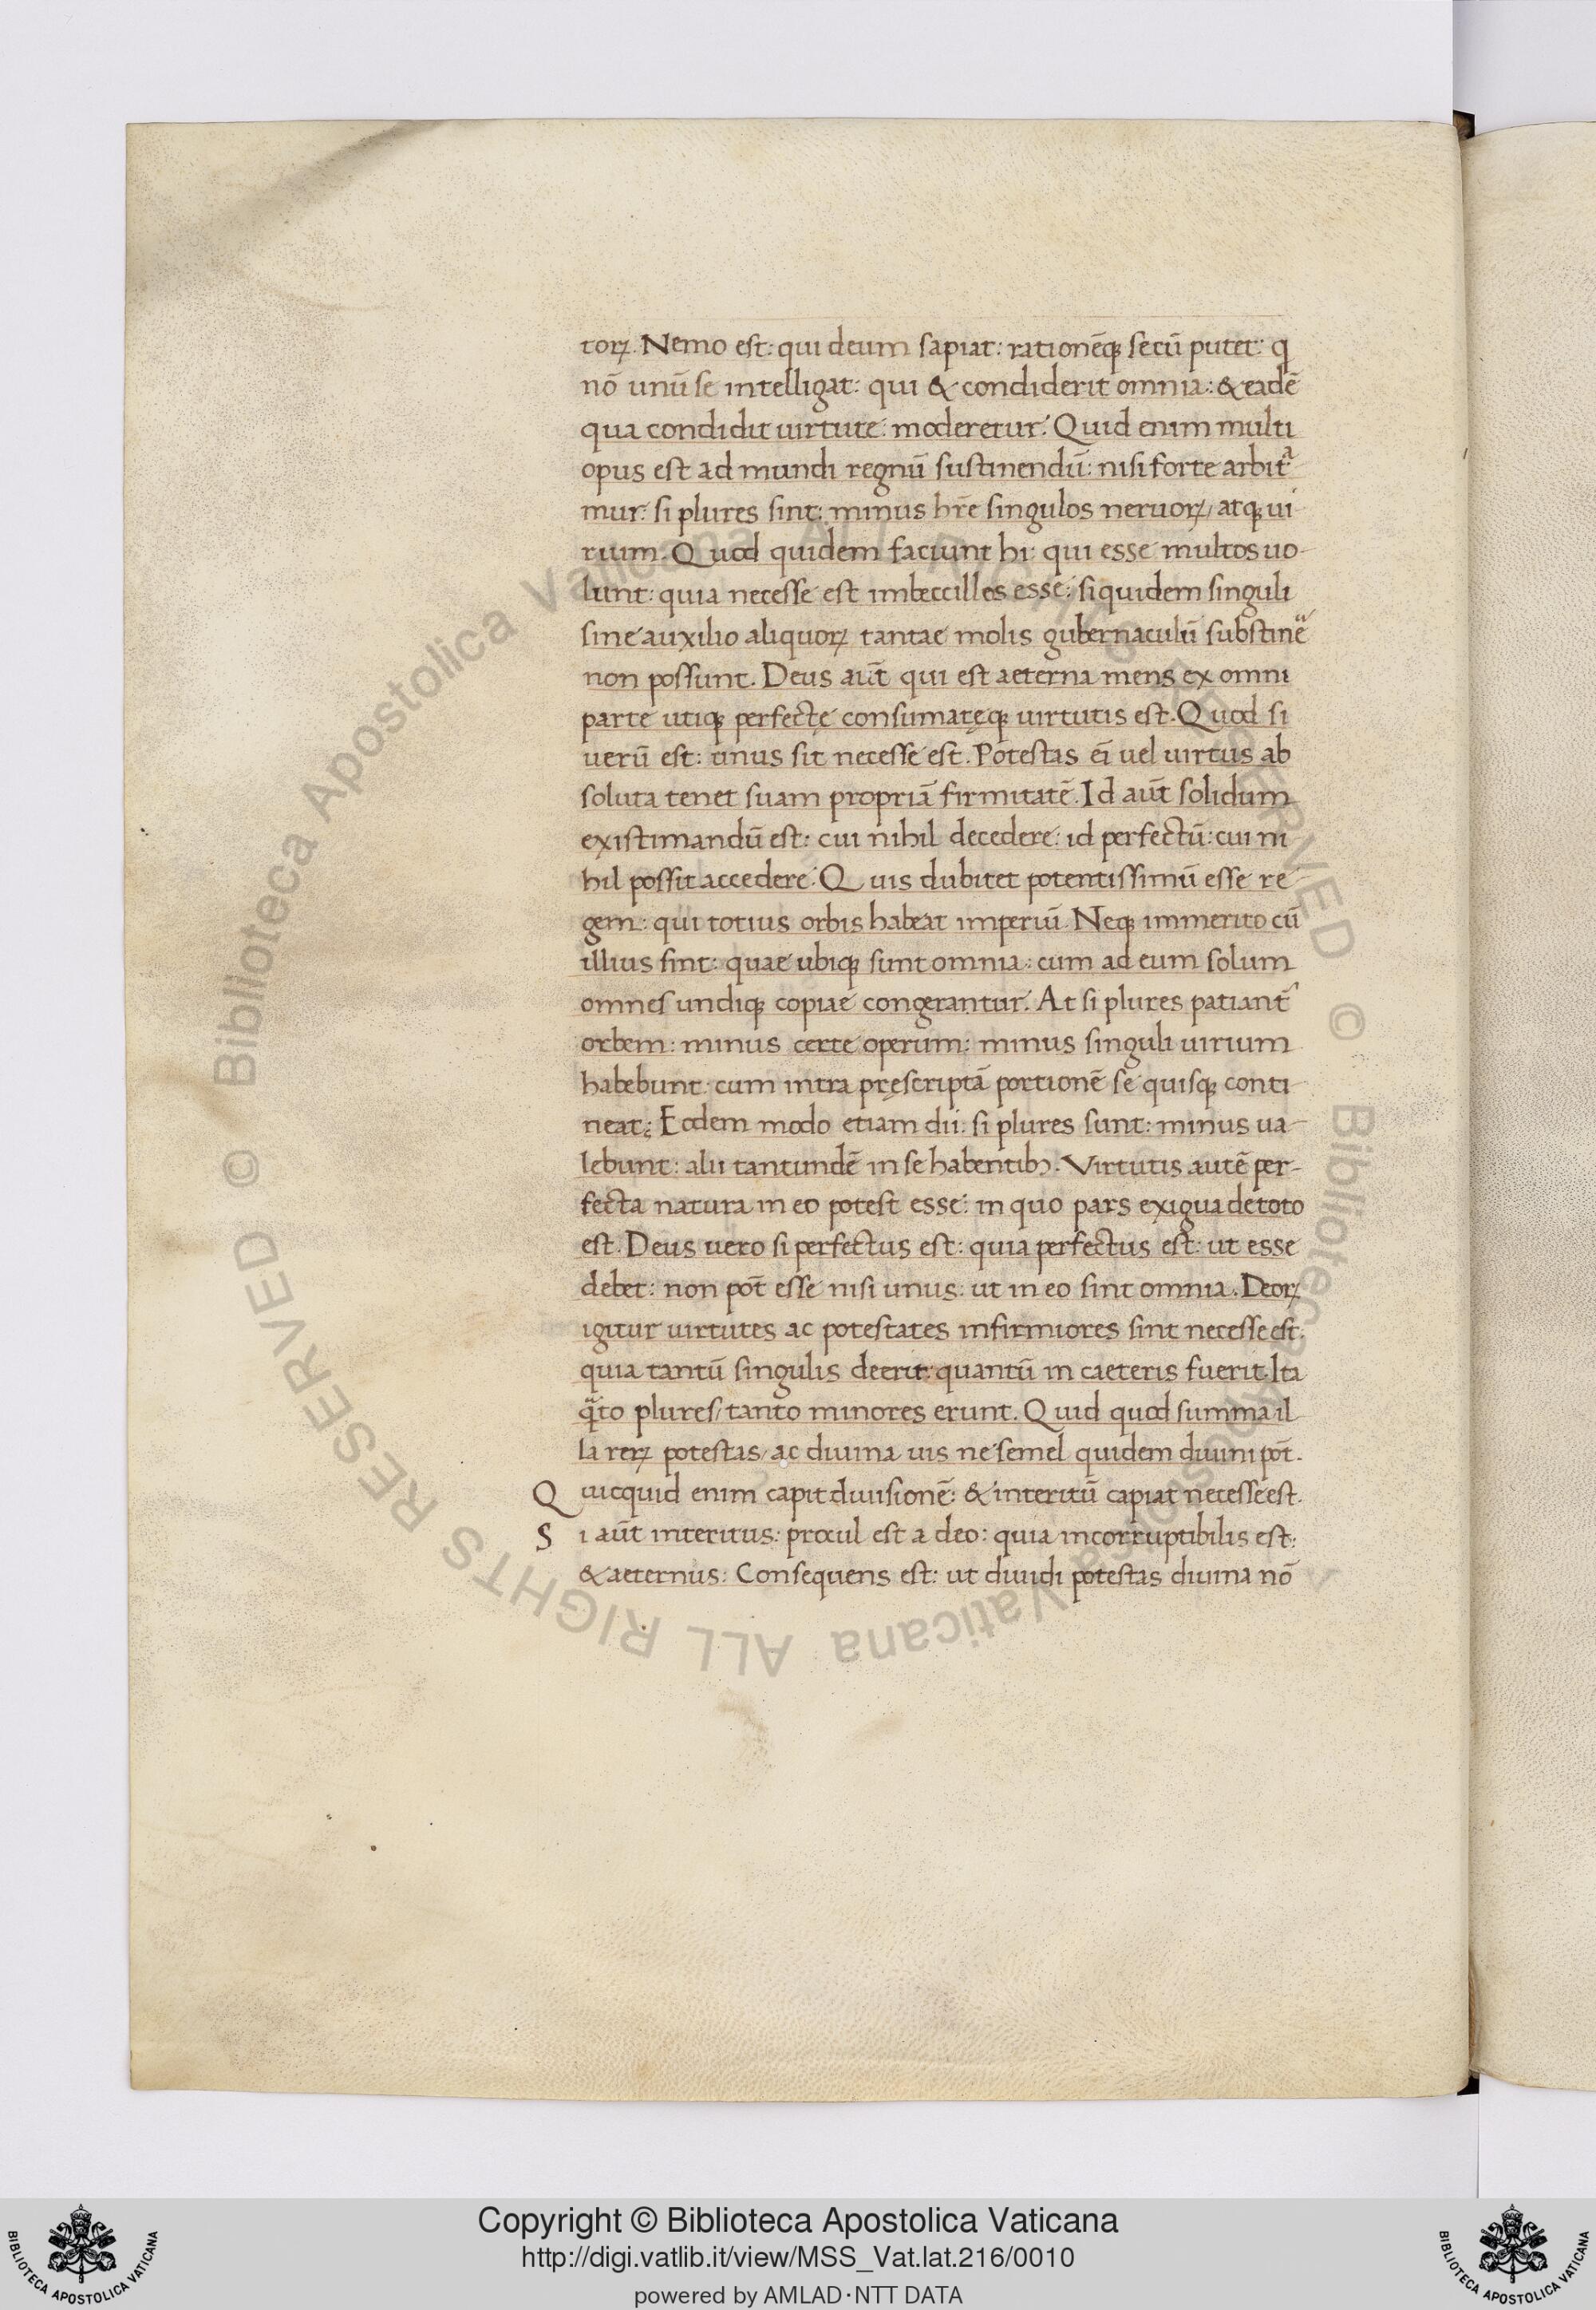 torꝝ. Nemo est: qui deum sapiat: rationēqꝫ secū putet: q
nō unū se intelligat: qui & condiderit omnia: & eadē
qua condidit uirtute moderetur. Quid enim multi
opus est ad mundi regnū sustinendū: nisi forte arbitᵃ
mur: si plures sint: minus hr̄e singulos neruorꝝ/ atqꝫ ui
rium. Quod quidem faciunt hi: qui esse multos uo-
lunt: quia necesse est imbeccilles esse: siquidem singuli
sine auxilio aliquorꝝ tantae molis gubernaculū substinē
non possunt. Deus aūt qui est aeterna mens ex omni
parte utiqꝫ perfectę consumatęqꝫ uirtutis est. Quod si
uerū est: unus sit necesse est. Potestas ēi uel uirtus ab
soluta tenet suam propriā firmitatē. Id aūt solidum
existimandū est: cui nihil decedere: id perfectū: cui ni
hil possit accedere. Quis dubitet potentissimū esse re-
gem: qui totius orbis habeat imperiū. Neqꝫ immerito cū
illius sint: quae ubiqꝫ sunt omnia: cum ad eum solum
omnes undiqꝫ copiae congerantur. At si plures patiant᷑
orbem: minus certe operum: minus singuli uirium
habebunt: cum intra pręscriptā portionē se quisqꝫ conti-
neat: Eodem modo etiam dii: si plures sunt: minus ua-
lebunt: alii tantundē in se habentibꝫ. Virtutis autē per-
fecta natura in eo potest esse: in quo pars exigua de toto
est. Deus uero si perfectus est: quia perfectus est: ut esse
debet: non pōt esse nisi unus: ut in eo sint omnia. Deorꝝ
igitur uirtutes ac potestates infirmiores sint necesse est:
quia tantū singulis deerit: quantū in caeteris fuerit. Ita
qᵃ̄to plures/ tanto minores erunt. Quid quod summa il
la rerꝝ potestas/ ac diuina uis ne semel quidem diuini pōt.
Quicquid enim capit diuisionē: & interitū capiat necesse est.
Si aūt interitus: procul est a deo: quia incorruptibilis est:
& aeternus: Consequens est: ut diuidi potestas diuina nō
© Biblioteca Apostolica Vaticana ALL RIGHTS RESERVED © Biblioteca Apostolica Vaticana ALL RIGHTS RESERVED
Copyright © Biblioteca Apostolica Vaticana
http://digi.vatlib.it/view/MSS_Vat.lat.216/0010
powered by AMLAD·NTT DATA
BIBLIOTECA APOSTOLICA VATICANA
BIBLIOTECA APOSTOLICA VATICANA